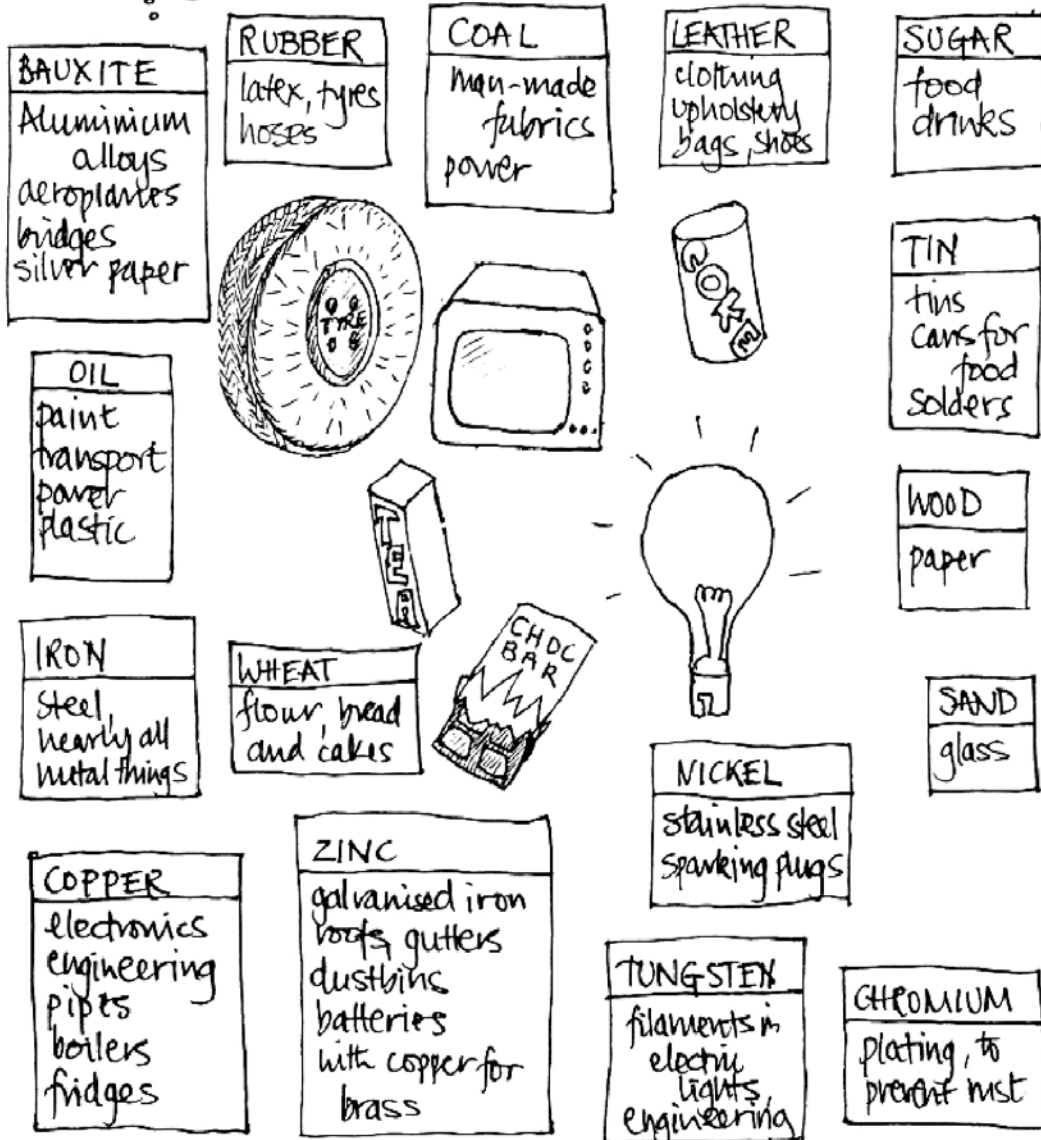 BAUXITE
Aluminium
alloys
aeroplanes
bridges
silver paper
RUBBER
latex, tyres
hoses
COAL
man-made
fabrics
power
LEATHER
clothing
upholstery
bags, shoes
SUGAR
food
drinks
TYRE
COKE
TIN
tins
cans for
food
solders
OIL
paint
transport
power
plastic
TEA
WOOD
paper
CHOC
BAR
IRON
steel,
nearly all
metal things
WHEAT
flour, bread
and cakes
SAND
glass
NICKEL
stainless steel
sparking plugs
COPPER
electronics
engineering
pipes
boilers
fridges
ZINC
galvanised iron
roofs, gutters
dustbins
batteries
with copper for
brass
TUNGSTEN
filaments in
electric
lights,
engineering
CHROMIUM
plating, to
prevent rust